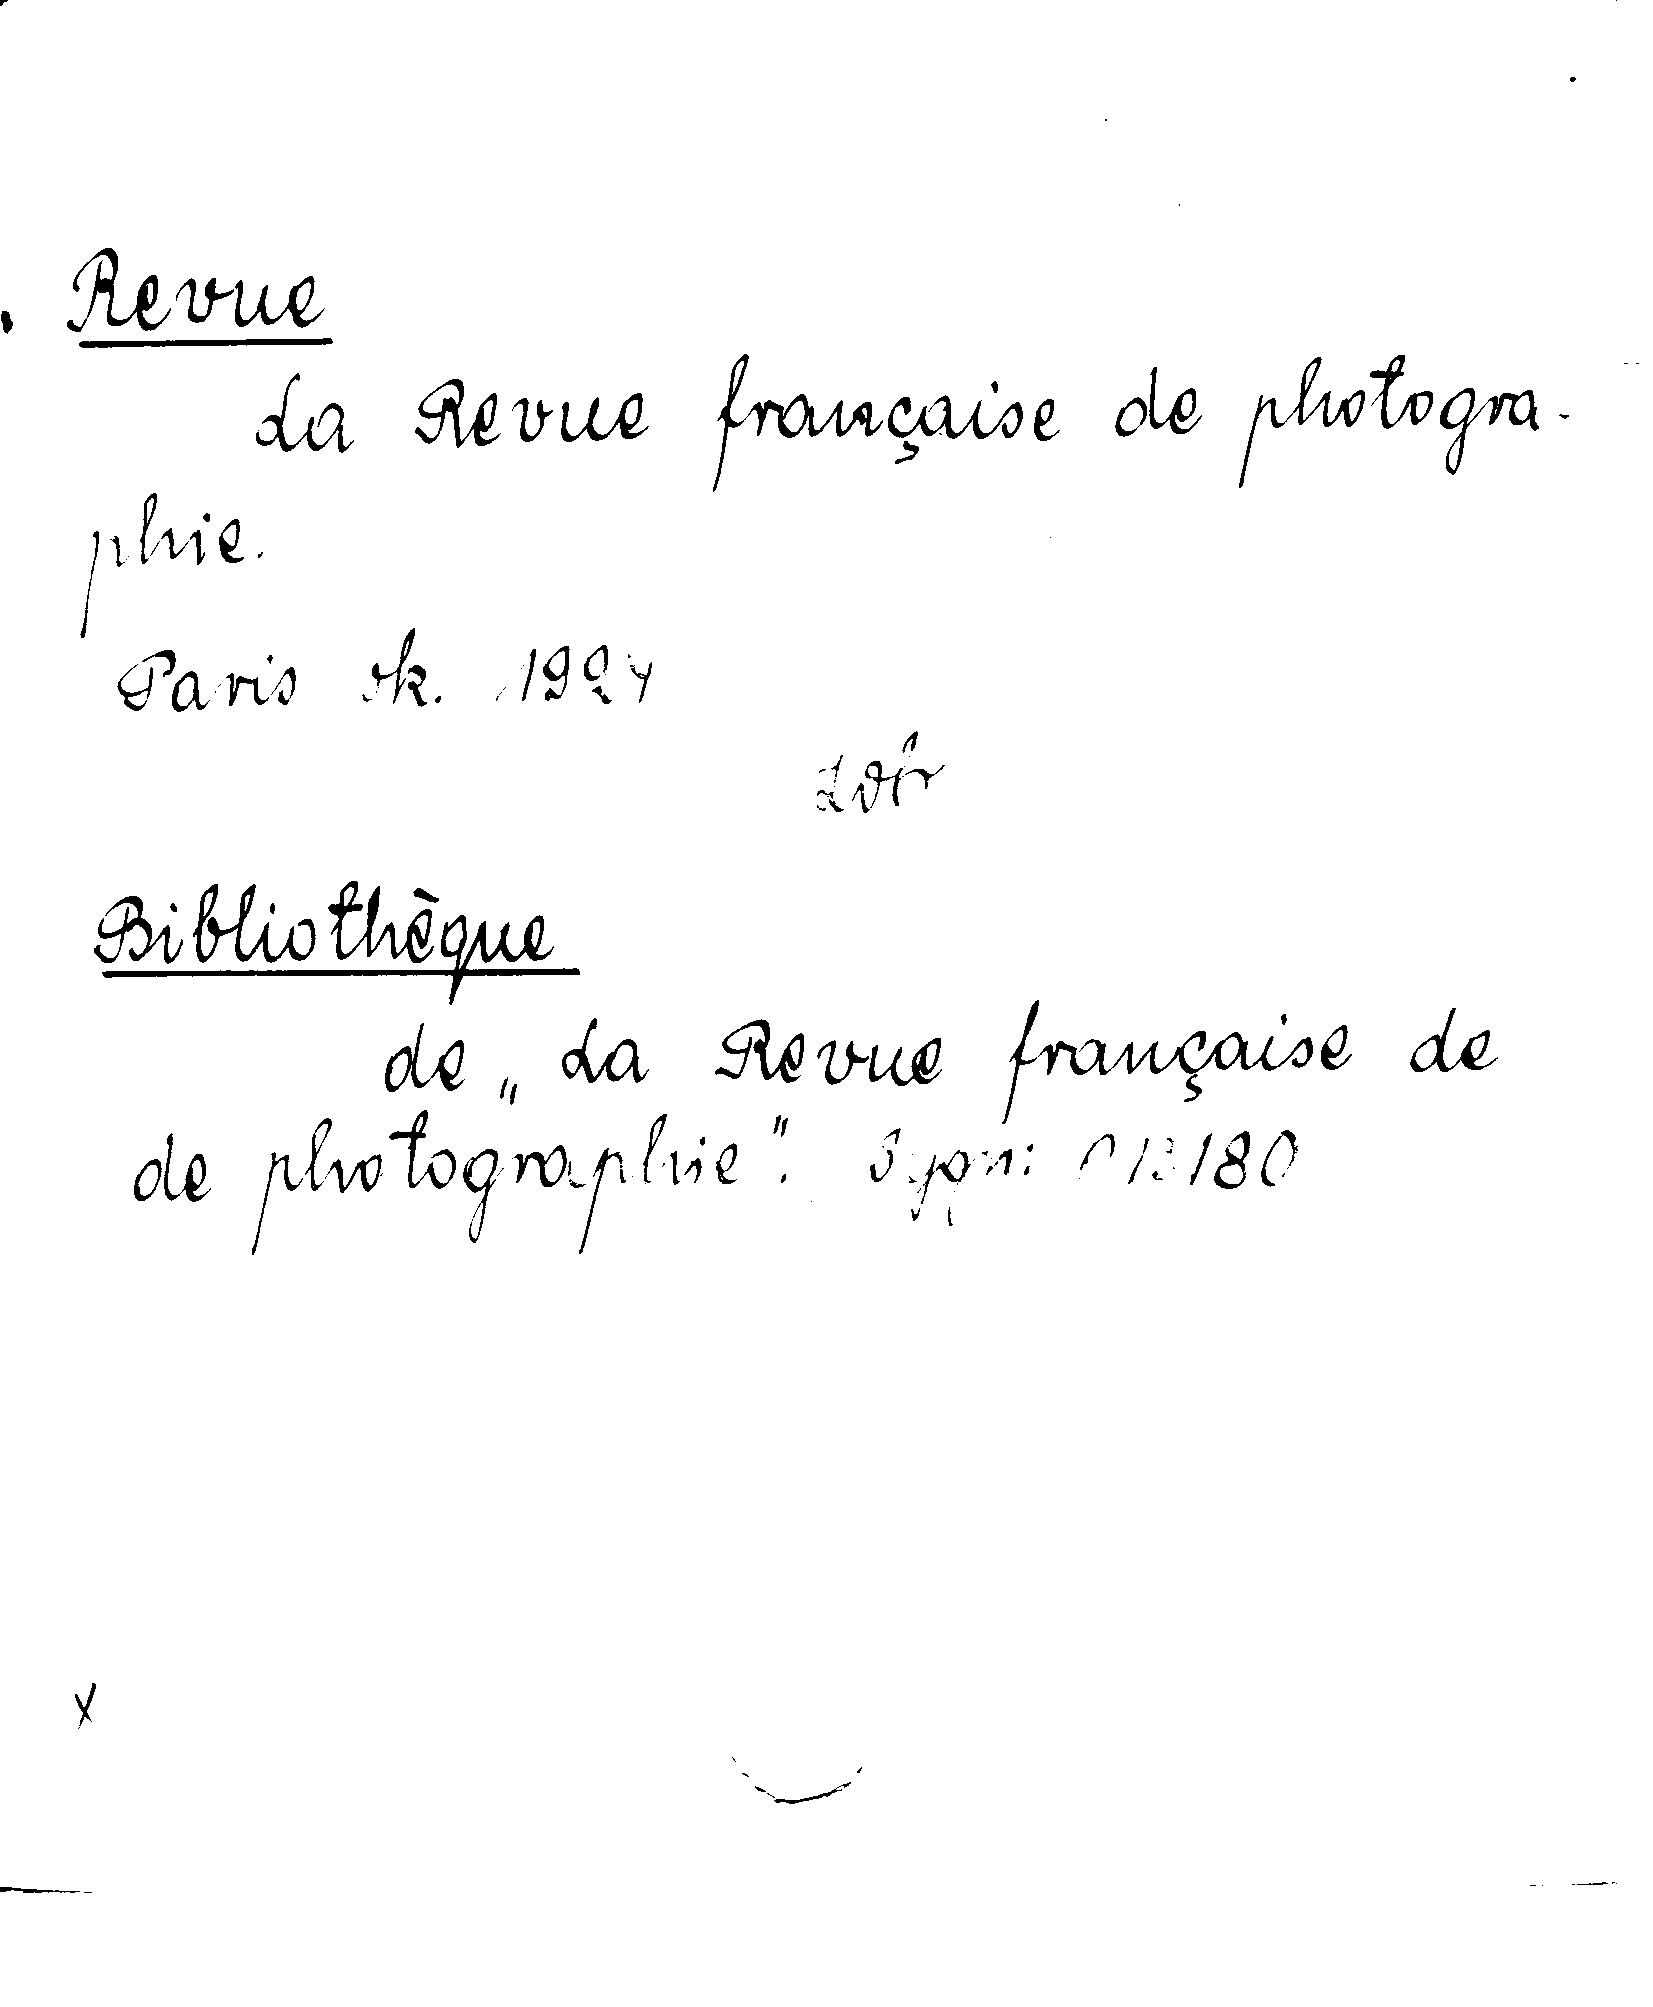 Revue
La Revue française de photogra-
phie.
Paris ok. 1924
Bibliothèque
de „La Revue française de
de photographie". Sygn:
x